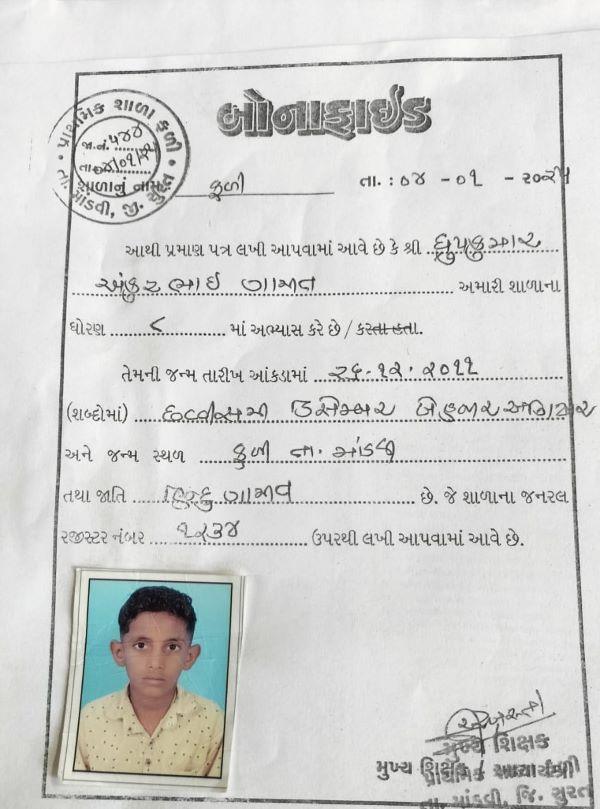 બોનાફાઈડ
પ્રાથમિક શાળા ફળી
જા.નં. ૫૪૪
તા. ૦૪/૦૧/૨૫
તા. માંડવી, જી. સુરત
શાળાનું નામ ફળી તા. : ૦૪ - ૦૧ - ૨૦૨૫
આથી પ્રમાણ પત્ર લખી આપવામાં આવે છે કે શ્રી ધ્રુપકુમાર
અંકુરભાઈ ગામીત અમારી શાળાના
ધોરણ ૮ માં અભ્યાસ કરે છે / કરતા હતા.
તેમની જન્મ તારીખ આંકડામાં ૨૬-૧૨-૨૦૧૧
(શબ્દોમાં) છવ્વીસમી ડિસેમ્બર બેહજાર અગિયાર
અને જન્મ સ્થળ ફળી તા. માંડવી
તથા જાતિ હિન્દુ ગામીત છે. જે શાળાના જનરલ
રજીસ્ટર નંબર ૧૨૩૪ ઉપરથી લખી આપવામાં આવે છે.
મુખ્ય શિક્ષક
મુખ્ય શિક્ષક / આચાર્યશ્રી
તા. માંડવી, જિ. સુરત